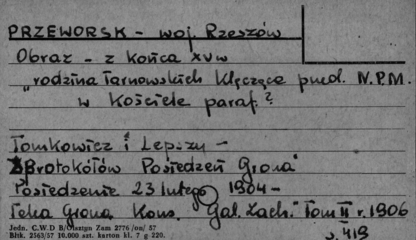 PRZEWORSK - woj. Rzeszów
Obraz - z końca XV w
"rodzina Tarnowskich klęcząca przed. N.P.M.
w Kościele paraf?
Tomkowicz i Lepszy -
Protokołów Posiedzeń Grona"
Posiedzenie 23 lutego 1904 -
Teka Grona Kons. Gal. Zach." Tom II r. 1906
s. 419
Jedn. C.W.D B/Olsztyn Zam 2776 /on/ 57
Błtk. 2563/57 10.000 szt. karton kl. 7 g 220.